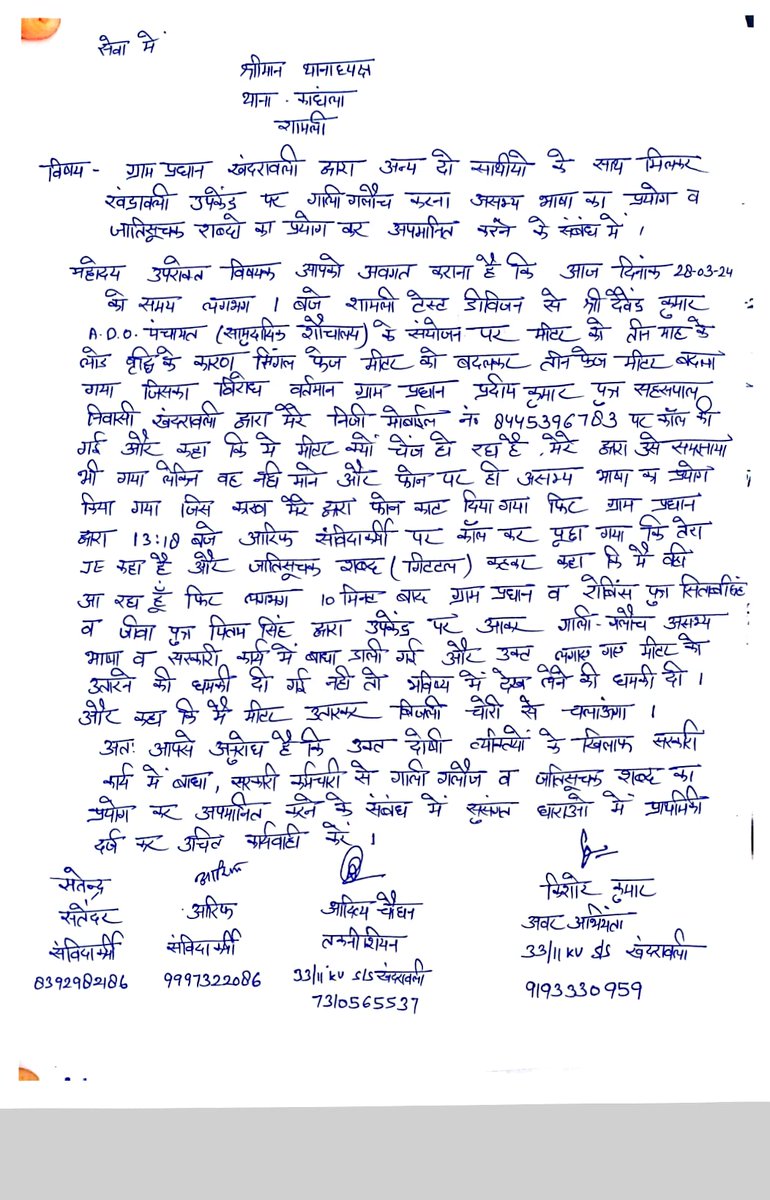 सेवा में
श्रीमान थानाध्यक्ष
थाना - कांधला
शामली
विषय - ग्राम प्रधान खंदरावली द्वारा अन्य दो साथीयो के साथ मिलकर
खंडावली उपकेंद्र पर गाली गलौच करना असभ्य भाषा का प्रयोग व
जातिसूचक शब्दो का प्रयोग कर अपमानित करने के संबंध में ।
महोदय उपरोक्त विषयक आपको अवगत कराना है कि आज दिनांक 28-03-24
को समय लगभग 1 बजे शामली टेस्ट डीविजन से श्री देवेंद्र कुमार
A.D.O. पंचायत (सामुदायिक शौचालय) के संयोजन पर मीटर को तीन माह के
लोड वृद्धि के कारण सिंगल फेज मीटर को बदलकर तीन फेज मीटर बदला
गया जिसका विरोध वर्तमान ग्राम प्रधान प्रदीप कुमार पुत्र सहसपाल
निवासी खंदरावली द्वारा मेरे निजी मोबाईल नं० 8445396783 पर कॉल की
गई और कहा कि मे मीटर क्यों चेंज हो रहा है, मेरे द्वारा उसे समझाया
भी गया लेकिन वह नही माने और फोन पर ही असभ्य भाषा का प्रयोग
किया गया जिस कारण मेरे द्वारा फोन काट दिया गया फिर ग्राम प्रधान
द्वारा 13:18 बजे आरिफ संविदाकर्मी पर कॉल कर पूछा गया कि तेरा
JE कहा है और जातिसूचक शब्द (गिटटल) कहकर कहा कि मै वही
आ रहा हूँ फिर लगभग 10 मिनट बाद ग्राम प्रधान व रोबिंस पुत्र सिताबसिंह
व जीवा पुत्र पितम सिंह द्वारा उपकेंद्र पर आकर गाली-गलौच असभ्य
भाषा व सरकारी कार्य में बाधा डाली गई और उक्त लगाए गए मीटर को
उतारने की धमकी दी गई नही तो भविष्य में देख लेने की धमकी दी ।
और कहा कि मै मीटर उतारकर बिजली चोरी से चलाऊंगा ।
अतः आपसे अनुरोध है कि उक्त दोषी व्यक्तियो के खिलाफ सरकारी
कार्य में बाधा, सरकारी कर्मचारी से गाली गलौज व जातिसूचक शब्द का
प्रयोग कर अपमानित करने के संबंध में सुसंगत धाराओ में प्राथमिकी
दर्ज कर उचित कार्यवाही करें ।
आरिफ
सतेन्द्र
सतेंदर
संविदाकर्मी
8392982186
आरिफ
संविदाकर्मी
9997322086
आदित्य चौधन
तकनीशियन
33/11 KV S/S खंदरावली
7310565537
किशोर कुमार
अवर अभियंता
33/11 KV S/S खंदरावली
9193330959